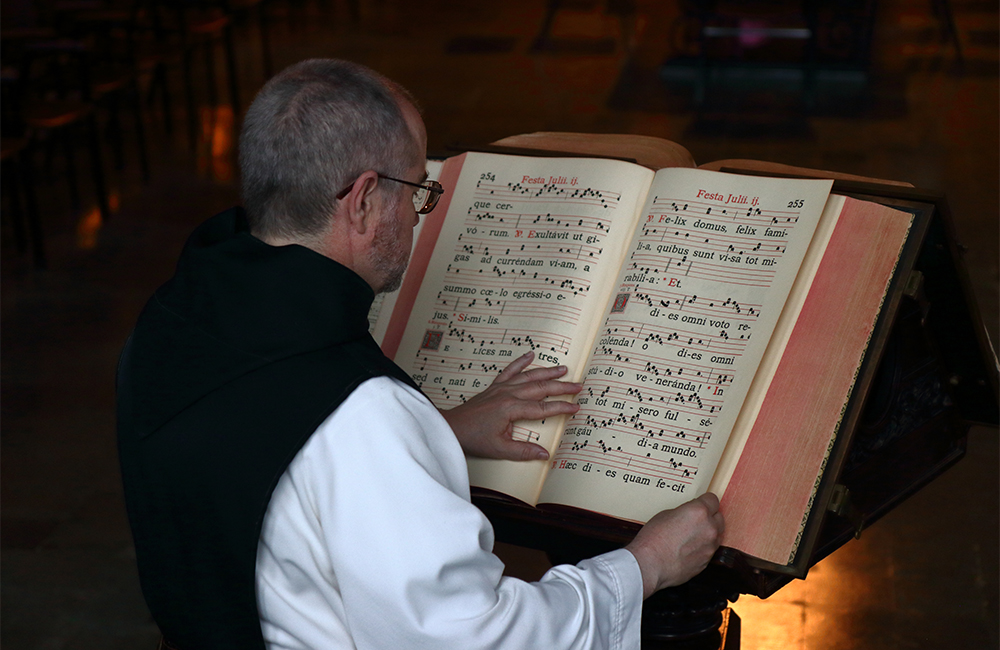 254
Festa Julii. ij
que cer-
vó - rum. ℣. Exultávit ut gi-
gas ad curréndam vi-am, a
summo cœ-lo egréssi-o e-
jus. * Si-mi-lis.
E - LÍCES ma tres,
sed et nati fe
Festa Julii. ij.
255
℣. Fe-lix domus, felix fami-
li-a, quibus sunt vi-sa tot mi-
rabíli-a: * Et.
di-es omni voto re-
colénda! o di-es omni
stú-di-o ve-neránda! * In
qua tot mi - sero ful - sé-
runt gáu di-a mundo.
℣. Hæc di-es quam fe-cit